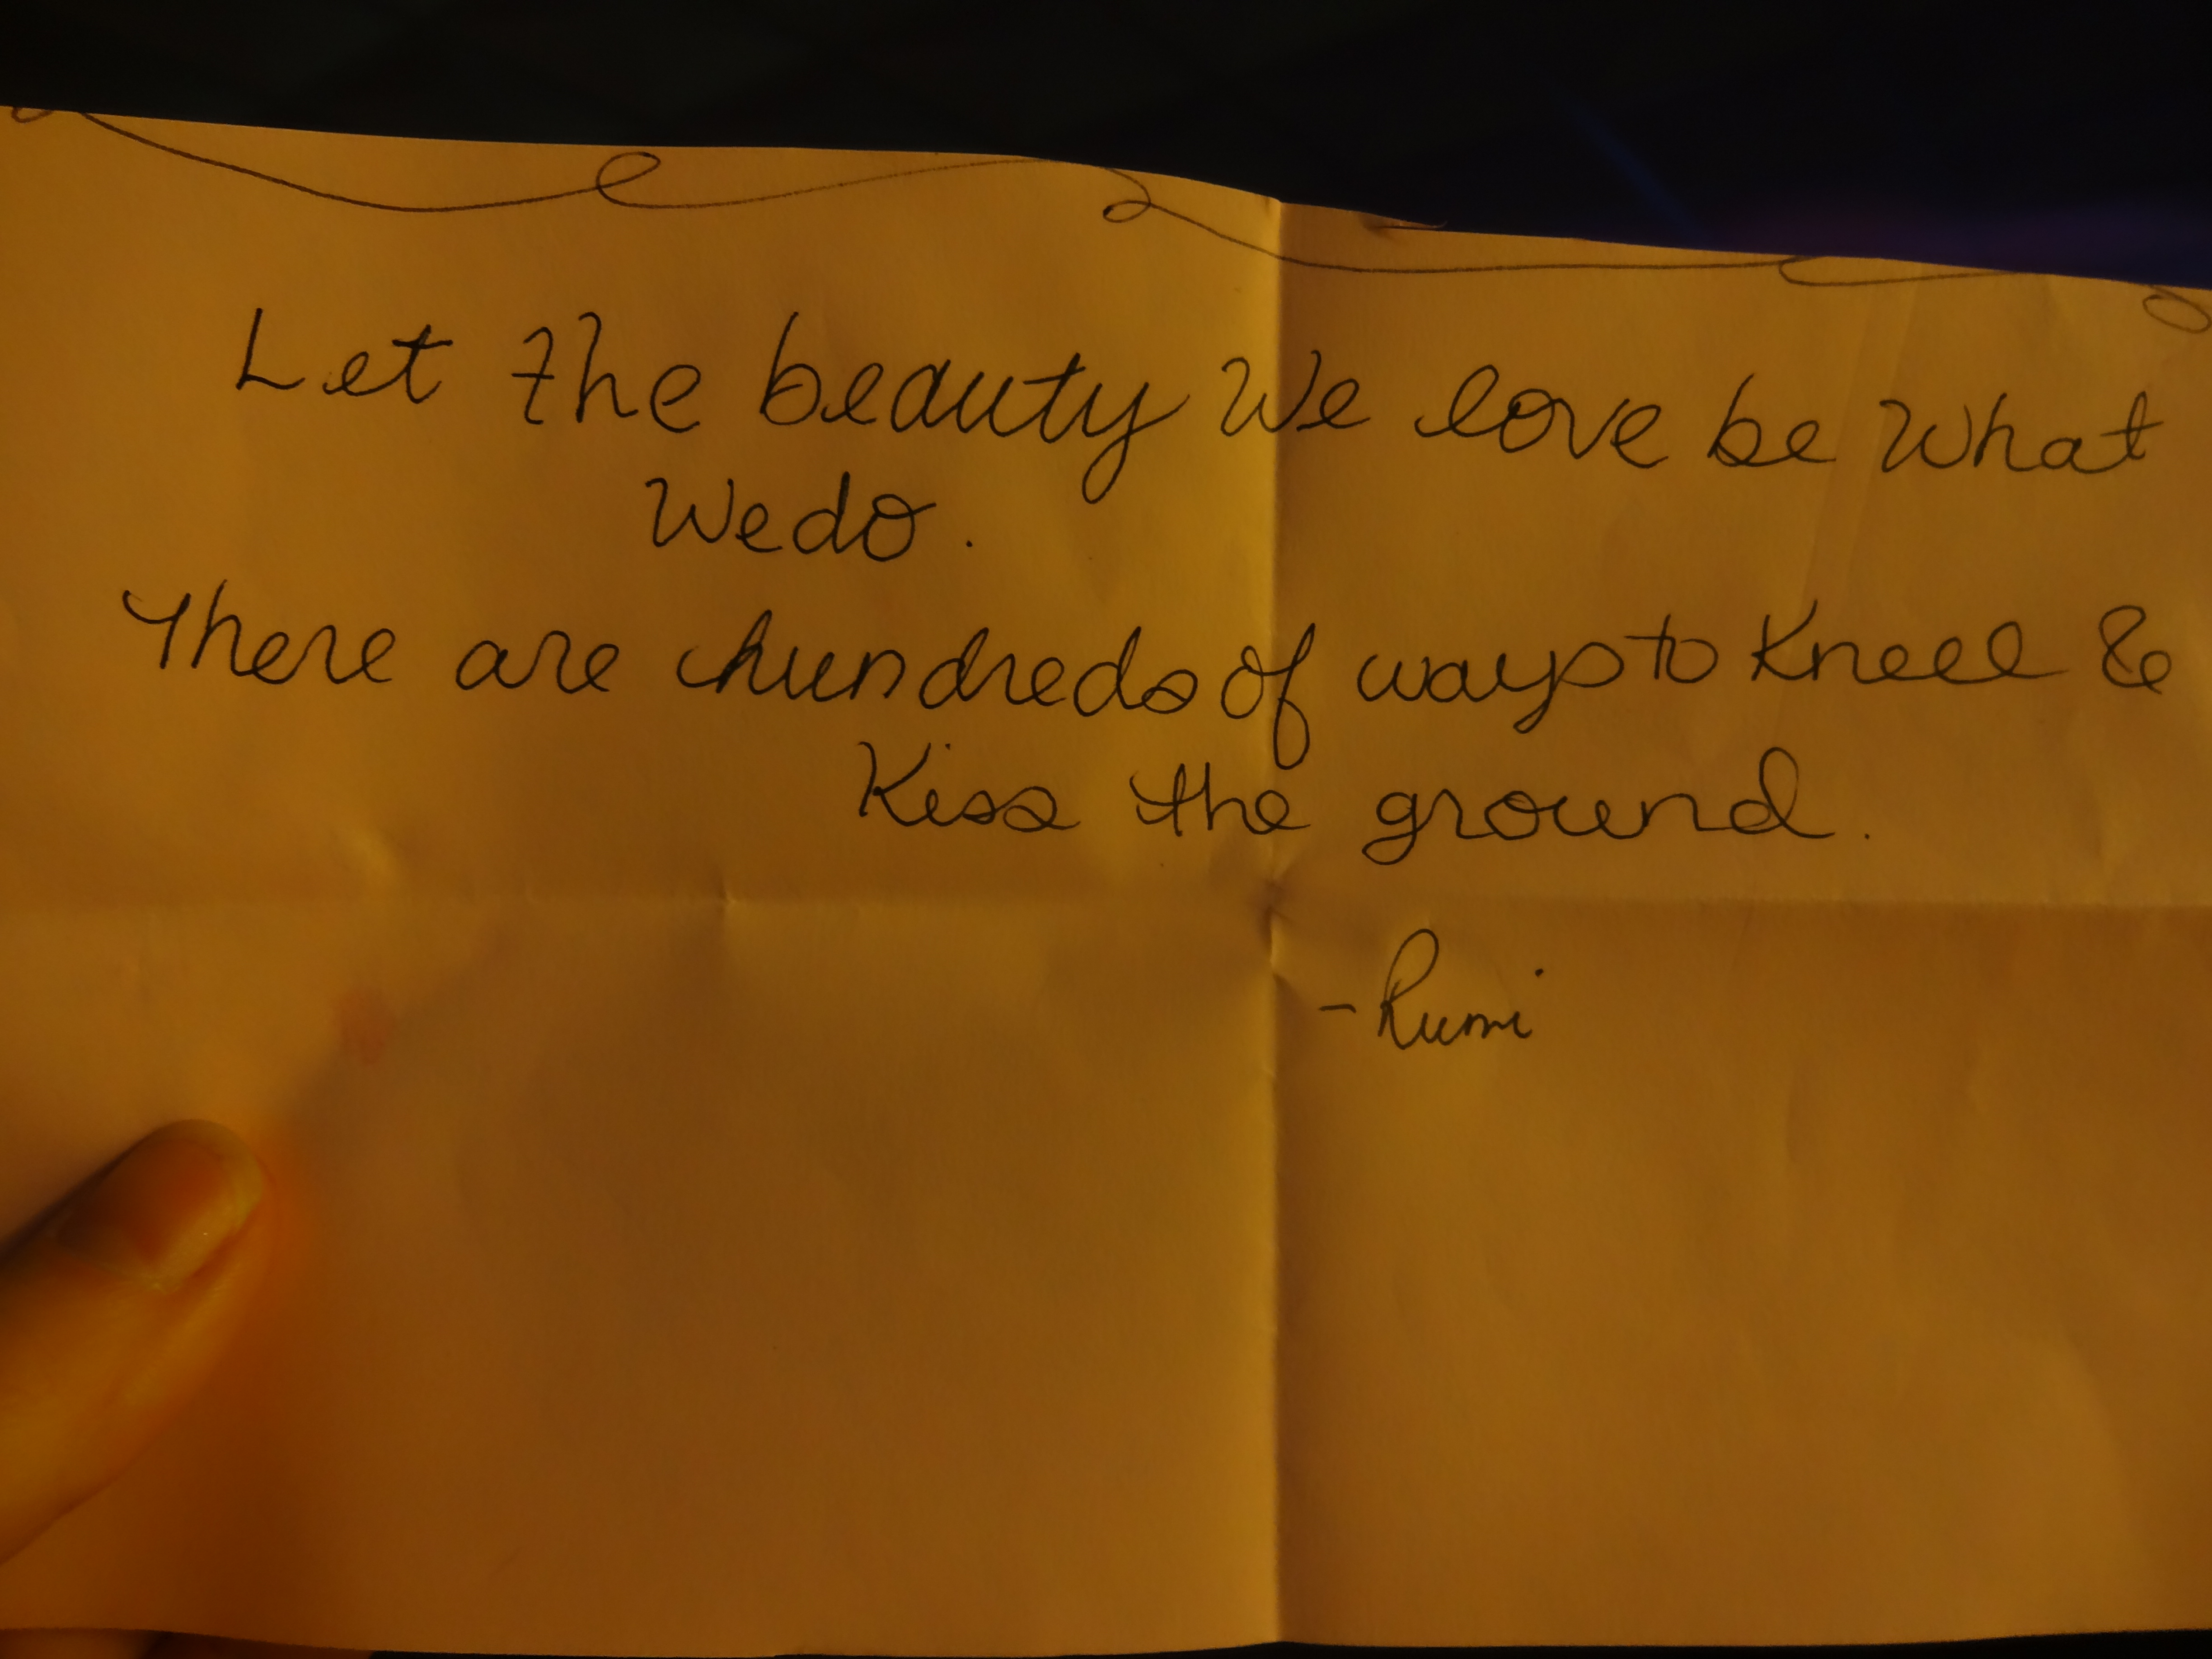 Let the beauty We love be What
We do.
There are hundreds of ways to Kneel &
Kiss the ground.
- Rumi